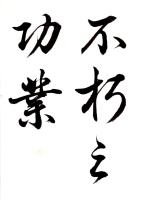 不朽之
功業